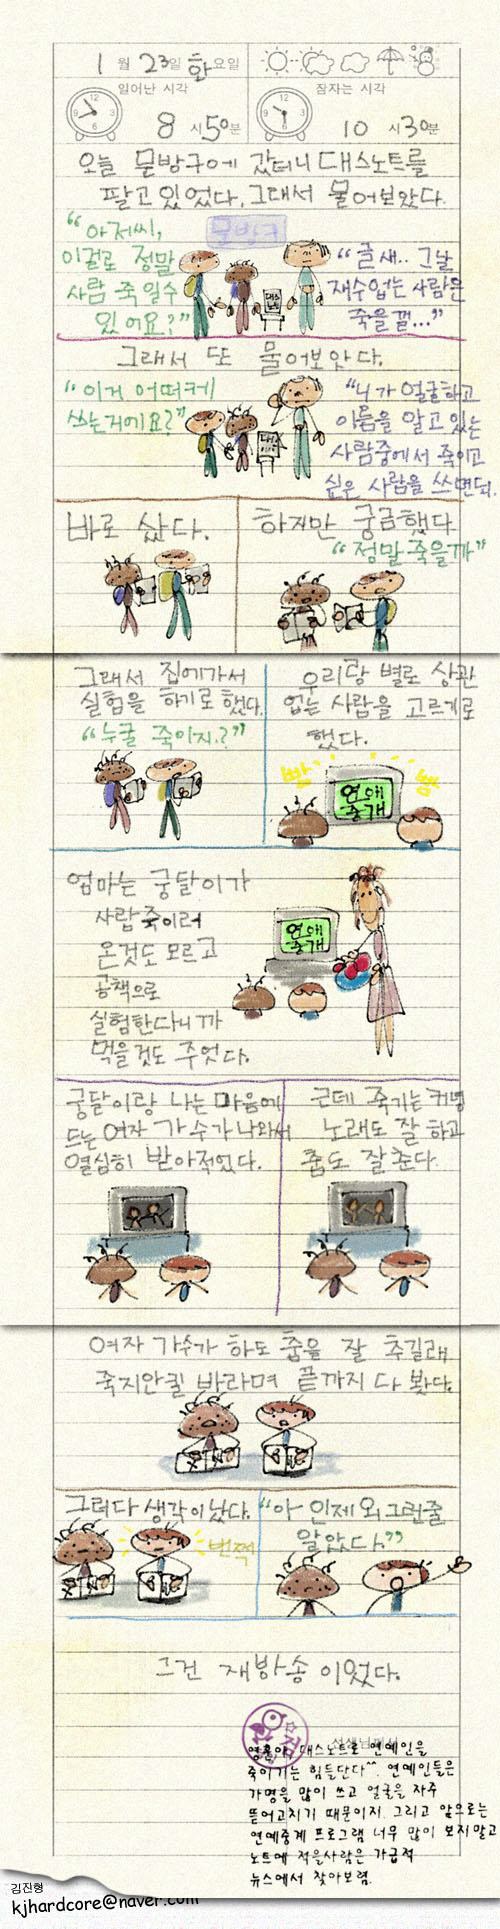 1월 23일 화요일
일어난 시각
잠자는 시각
8시 50분
10시 30분
오늘 문방구에 갔더니 대스노트를
팔고 있었다. 그래서 물어보았다.
"아저씨,
이걸로 정말
사람 죽일수
있어요?"
문방구
"글쎄.. 그날
재수없는 사람은
죽을껄..."
그래서 또 물어보았다.
"이거 어떠케
쓰는거에요?"
"니가 얼굴하고
이름을 알고 있는
사람중에서 죽이고
싶은 사람을 쓰면돼.
바로 샀다.
하지만 궁금했다
"정말 죽을까"
그래서 집에가서
실험을 하기로 했다.
"누굴 죽이지.?"
우리랑 별로 상관
없는 사람을 고르기로
했다.
빰 빰
연애
중개
엄마는 궁달이가
사람 죽이러
온것도 모르고
공책으로
실험한다니까
먹을것도 주었다.
연애
중개
궁달이랑 나는 마음에
드는 여자 가수가 나와서
열심히 받아적었다.
근데 죽기는 커녕
노래도 잘 하고
춤도 잘춘다.
여자 가수가 하도 춤을 잘 추길래
죽지안킬 바라며 끝까지 다 봤다.
그러다 생각이났다.
번쩍
"아 인제 왜 그런줄
알았다"
그건 재방송 이었다.
대스노트로 연예인을
죽이기는 힘들단다^^. 연예인들은
가명을 많이 쓰고 얼굴을 자주
뜯어고치기 때문이지. 그리고 앞으로는
연예중계 프로그램 너무 많이 보지말고
노트에 적을사람은 가급적
뉴스에서 찾아보렴.
김진형
kjhardcore@naver.com